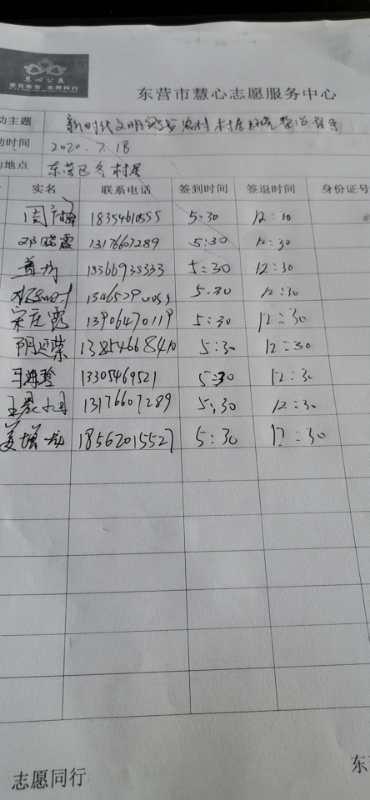 慧心公益
东营市慧心志愿服务中心
动主题 新时代文明实践 农村 村居环境整治
动时间 2020.7.18
动地点 东营区冬村居
实名 联系电话 签到时间 签退时间 身份证号
18354610555 5:30 12:30
邓瑞霞 13176607289 5:30 12:30
18366938333 5:30 12:30
5:30 12:30
宋庆霞 13906470119 5:30 12:30
阴延荣 13854668410 5:30 12:30
13305469521 5:30 12:30
13176607289 5:30 12:30
姜增龙 18562015527 5:30 12:30
志愿同行
东